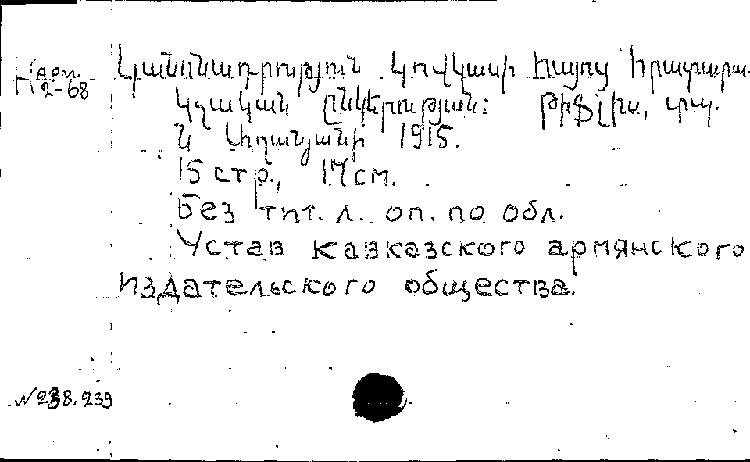 Нарп.
2-68
Կանոնադրություն Կովկասի Հայոց Հրատարա-
կչական ընկերության: Թիֆլիս, տպ.
Ն. Աղանյանի 1915.
15 стр., 17 см.
Без тит. л. оп. по обл.
Устав кавказского армянского
издательского общества.
№ 238.239